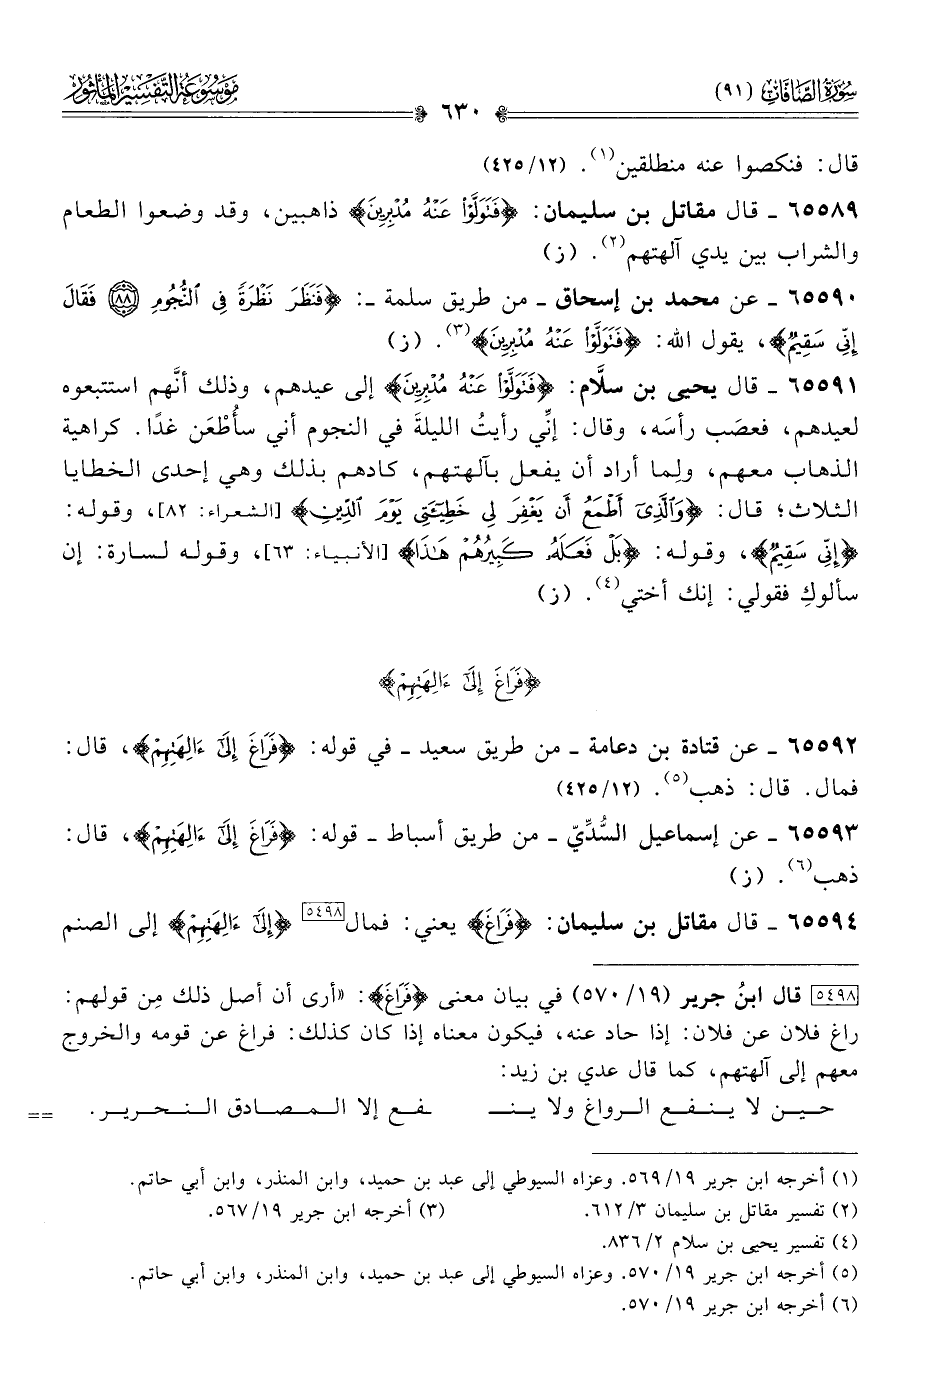 سورة الصافات (٩١)
موسوعة التفسير المأثور
٦٣٠
قال: فنكصوا عنه منطلقين(١). (٤٢٥/١٢)
٦٥٥٨٩ ـ قال مقاتل بن سليمان: ﴿فَتَوَلَّوْا۟ عَنْهُ مُدْبِرِينَ﴾ ذاهبين، وقد وضعوا الطعام
والشراب بين يدي آلهتهم(٢). (ز)
٦٥٥٩٠ ـ عن محمد بن إسحاق ـ من طريق سلمة ـ: ﴿فَنَظَرَ نَظْرَةً فِى ٱلنُّجُومِ ٨٨ فَقَالَ
إِنِّى سَقِيمٌ﴾، يقول الله: ﴿فَتَوَلَّوْا۟ عَنْهُ مُدْبِرِينَ﴾(٣). (ز)
٦٥٥٩١ ـ قال يحيى بن سلَّام: ﴿فَتَوَلَّوْا۟ عَنْهُ مُدْبِرِينَ﴾ إلى عيدهم، وذلك أنَّهم استتبعوه
لعيدهم، فعصَب رأسَه، وقال: إنِّي رأيتُ الليلةَ في النجوم أني سأُطْعَن غدًا. كراهية
الذهاب معهم، ولِما أراد أن يفعل بآلهتهم، كادهم بذلك وهي إحدى الخطايا
الثلاث؛ قال: ﴿وَٱلَّذِىٓ أَطْمَعُ أَن يَغْفِرَ لِى خَطِيٓـَٔتِى يَوْمَ ٱلدِّينِ﴾ [الشعراء: ٨٢]، وقوله:
﴿إِنِّى سَقِيمٌ﴾، وقوله: ﴿بَلْ فَعَلَهُۥ كَبِيرُهُمْ هَـٰذَا﴾ [الأنبياء: ٦٣]، وقوله لسارة: إن
سألوكِ فقولي: إنك أختي(٤). (ز)
﴿فَرَاغَ إِلَىٰٓ ءَالِهَتِهِمْ﴾
٦٥٥٩٢ ـ عن قتادة بن دعامة ـ من طريق سعيد ـ في قوله: ﴿فَرَاغَ إِلَىٰٓ ءَالِهَتِهِمْ﴾، قال:
فمال. قال: ذهب(٥). (٤٢٥/١٢)
٦٥٥٩٣ ـ عن إسماعيل السُّدِّيّ ـ من طريق أسباط ـ قوله: ﴿فَرَاغَ إِلَىٰٓ ءَالِهَتِهِمْ﴾، قال:
ذهب(٦). (ز)
٦٥٥٩٤ ـ قال مقاتل بن سليمان: ﴿فَرَاغَ﴾ يعني: فمال[٥٤٩٨] ﴿إِلَىٰٓ ءَالِهَتِهِمْ﴾ إلى الصنم
[٥٤٩٨] قال ابنُ جرير (١٩/ ٥٧٠) في بيان معنى ﴿فَرَاغَ﴾: «أرى أن أصل ذلك مِن قولهم:
راغ فلان عن فلان: إذا حاد عنه، فيكون معناه إذا كان كذلك: فراغ عن قومه والخروج
معهم إلى آلهتهم، كما قال عدي بن زيد:
حـيـن لا يـنـفـع الـرواغ ولا يـنـــ ـفـع إلا الـمـصـادق الـنـحـريـر. ==
(١) أخرجه ابن جرير ١٩/ ٥٦٩. وعزاه السيوطي إلى عبد بن حميد، وابن المنذر، وابن أبي حاتم.
(٢) تفسير مقاتل بن سليمان ٣/ ٦١٢. (٣) أخرجه ابن جرير ١٩/ ٥٦٧.
(٤) تفسير يحيى بن سلام ٢/ ٨٣٦.
(٥) أخرجه ابن جرير ١٩/ ٥٧٠. وعزاه السيوطي إلى عبد بن حميد، وابن المنذر، وابن أبي حاتم.
(٦) أخرجه ابن جرير ١٩/ ٥٧٠.